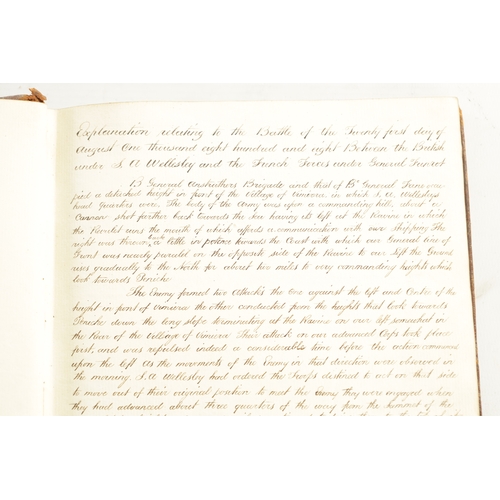 Explanation relating to the Battle of the Twenty first day of
August One thousand eight hundred and eight Between the British
under S. A Wellesley and the French Forces under General Junot
B General Anstruthers Brigade and that of B General Fane occu
pied a detached height in front of the Village of Vimiera in which S. A Wellesleys
head Quarters were. The body of the Army was upon a commanding hill, about a
Cannon shot further back towards the Sea having its left at the Ravine in which
the Rivulet runs the mouth of which affords a communication with our shipping The
right was thrown back a little in potence towards the Coast with which our General line of
Front was nearly parallel on the opposite side of the Ravine to our left the Ground
runs gradually to the North for about two miles to very commanding heights which
look towards Peniche
The Enemy formed two Attacks the one against the left and Centre of the
height in front of Vimiera the other conducted from the heights that look towards
Peniche down the long slope terminating at the Ravine on our left somewhat in
the Rear of the Village of Vimiera Their attack on our advanced Corps took place
first, and was repulsed indeed a considerable time before the action commenced
upon the left As the movements of the Enemy in that direction were observed in
the morning S. A Wellesley had ordered the Troops destined to act on that side
to move out of their original position to meet the Enemy they were engaged when
they had advanced about three quarters of the way from the summit of the